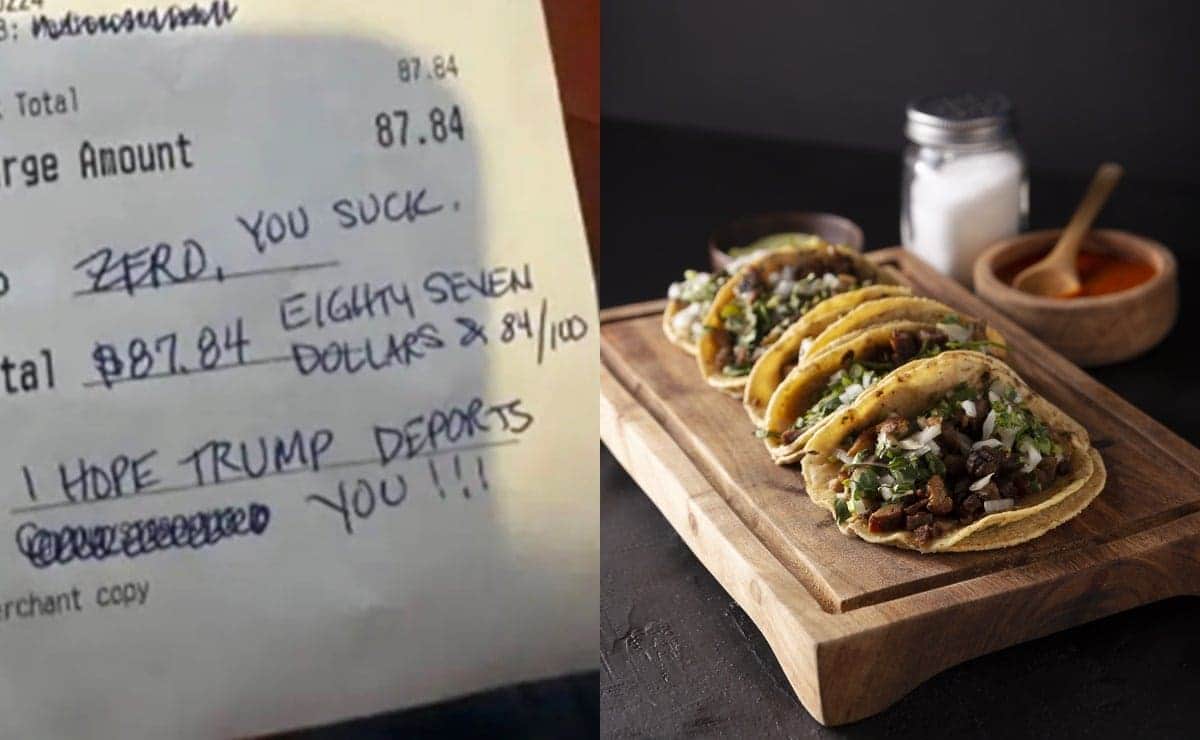 Total
87.84
rge Amount
87.84
ZERO, YOU SUCK.
tal $87.84 EIGHTY SEVEN
DOLLARS & 84/100
I HOPE TRUMP DEPORTS
YOU !!!
erchant copy